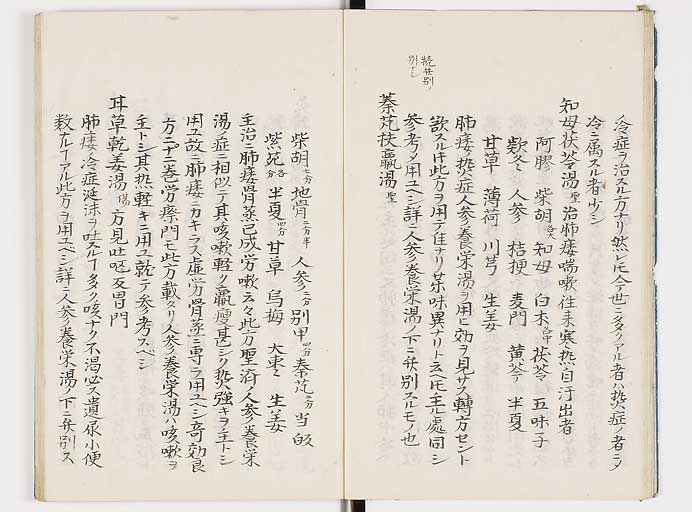 冷症ヲ治スル方ナリ然レ𪜈今世ニ多クアル者ハ熱症ノ者ニメ
冷ニ属スル者少シ
知母茯苓湯 聖 治肺痿喘嗽往来寒熱自汗出者
阿膠 柴胡各大 知母 白朮各中 茯苓 五味子
欵冬 人参 桔梗 麦門 黄芩 半夏
甘草 薄荷 川芎 生姜
肺痿熱症人参養栄湯ヲ用ヒ効ヲ見サス轉方セント
欲スル𪜈此方ヲ用テ佳ナリ茱味異ナリト云𪜈主處同シ
参考メ用ユヘシ詳ニ人参養栄湯ノ下ニ弁別スルモノ也
秦芃扶羸湯 聖
柴胡七分 地骨二分半 人参二分 別甲四分 秦芃 当皈
紫苑各分 半夏四分 甘草 烏梅 大棗 生姜
主治ニ肺痿骨蒸已成労嗽云々此方聖済人参養栄
湯ノ症ニ相似テ其咳嗽軽ク羸瘦甚シク熱強キヲ主トシ
用ユ故ニ肺痿ニカキラス虚労骨蒸ニ専ラ用ユヘシ奇効良
方ニテニ巻労瘵門モ此方載タリ人参養栄湯ハ咳嗽ヲ
主トシ其熱軽キニ用ユ就テ参考スベシ
耳草乾姜湯 傷 方見吐嘔反胃門
肺痿冷症涎沫ヲ吐スルヿ多ク咳ナク不渇必ス遺尿小便
数ナルヿアル此方ヲ用ユヘシ詳ニ人参養栄湯ノ下ニ弁別ス